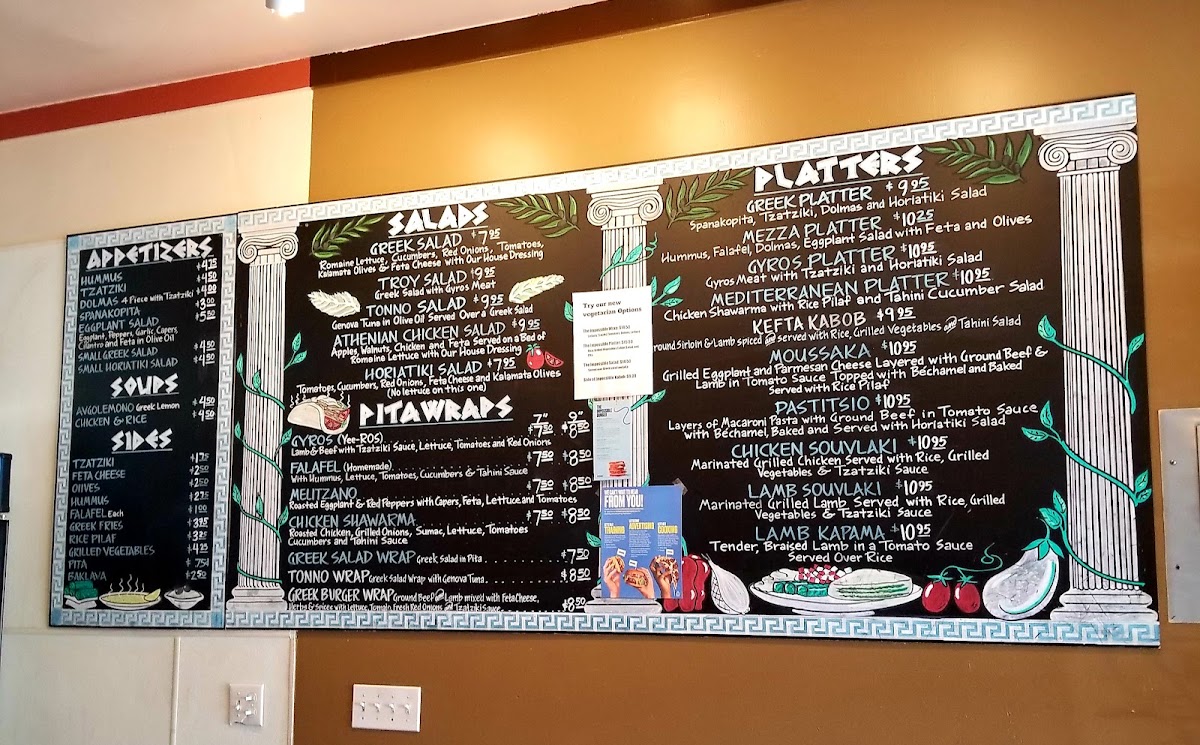 APPETIZERS
HUMMUS $4.75
TZATZIKI $4.50
DOLMAS 4 Piece with Tzatziki $4.00
SPANAKOPITA $3.00
EGGPLANT SALAD $5.50
Eggplant, Peppers, Garlic, Capers,
Cilantro and Feta in Olive Oil
SMALL GREEK SALAD $4.50
SMALL HORIATIKI SALAD $4.50
SOUPS
AVGOLEMONO Greek Lemon $4.50
CHICKEN & RICE $4.50
SIDES
TZATZIKI $1.75
FETA CHEESE $2.50
OLIVES $2.00
HUMMUS $2.75
FALAFEL Each $1.00
GREEK FRIES $3.75
RICE PILAF $3.25
GRILLED VEGETABLES $4.25
PITA .75¢
BAKLAVA $2.50
SALADS
GREEK SALAD $7.95
Romaine Lettuce, Cucumbers, Red Onions, Tomatoes,
Kalamata Olives & Feta Cheese with Our House Dressing
TROY SALAD $9.95
Greek Salad with Gyros Meat
TONNO SALAD $9.25
Genova Tuna in Olive Oil Served Over a Greek Salad
ATHENIAN CHICKEN SALAD $9.95
Apples, Walnuts, Chicken and Feta Served on a Bed of
Romaine Lettuce with Our House Dressing
HORIATIKI SALAD $7.95
Tomatoes, Cucumbers, Red Onions, Feta Cheese and Kalamata Olives
(No lettuce on this one)
PITA WRAPS
7" 9"
GYROS (Yee-ROS) $7.50 $8.50
Lamb & Beef with Tzatziki Sauce, Lettuce, Tomatoes and Red Onions
FALAFEL (Homemade) $7.50 $8.50
With Hummus, Lettuce, Tomatoes, Cucumbers & Tahini Sauce
MELITZANO $7.50 $8.50
Roasted Eggplant & Red Peppers with Capers, Feta, Lettuce and Tomatoes
CHICKEN SHAWARMA $7.50 $8.50
Roasted Chicken, Grilled Onions, Sumac, Lettuce, Tomatoes
Cucumbers and Tahini Sauce
GREEK SALAD WRAP Greek Salad in Pita $7.50
TONNO WRAP Greek Salad Wrap with Genova Tuna $8.50
GREEK BURGER WRAP Ground Beef and Lamb mixed with Feta Cheese,
Herbs & Spices with Lettuce, Tomato, Fresh Red Onions and Tzatziki Sauce $8.50
Try our new
vegetarian Options
WE CAN'T WAIT TO HEAR
FROM YOU!
TRAINING
ADVERTISING
COOKING
PLATTERS
GREEK PLATTER $9.95
Spanakopita, Tzatziki, Dolmas and Horiatiki Salad
MEZZA PLATTER $10.25
Hummus, Falafel, Dolmas, Eggplant Salad with Feta and Olives
GYROS PLATTER $10.95
Gyros Meat with Tzatziki and Horiatiki Salad
MEDITERRANEAN PLATTER $10.95
Chicken Shawarma with Rice Pilaf and Tahini Cucumber Salad
KEFTA KABOB $9.95
Ground Sirloin & Lamb spiced and Served with Rice, Grilled Vegetables and Tahini Salad
MOUSSAKA $10.95
Grilled Eggplant and Parmesan Cheese Layered with Ground Beef &
Lamb in Tomato Sauce Topped with Bechamel and Baked
Served with Rice Pilaf
PASTITSIO $10.95
Layers of Macaroni Pasta with Ground Beef in Tomato Sauce
with Béchamel, Baked and Served with Horiatiki Salad
CHICKEN SOUVLAKI $10.95
Marinated Grilled Chicken Served with Rice, Grilled
Vegetables & Tzatziki Sauce
LAMB SOUVLAKI $10.95
Marinated Grilled Lamb Served with Rice, Grilled
Vegetables & Tzatziki Sauce
LAMB KAPAMA $10.95
Tender, Braised Lamb in a Tomato Sauce
Served Over Rice